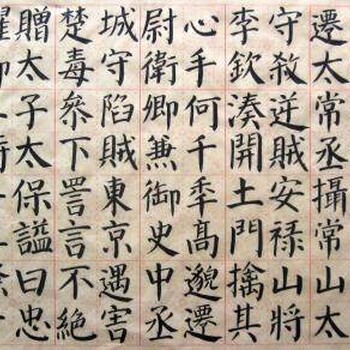 遷太常丞攝常山太
守殺逆賊安禄山將
李欽湊開土門擒其
心手何千秊髙邈遷
尉衛卿兼御史中丞
城守陷賊東京遇害
楚毒叅下詈言不絕
贈太子太保謚曰忠